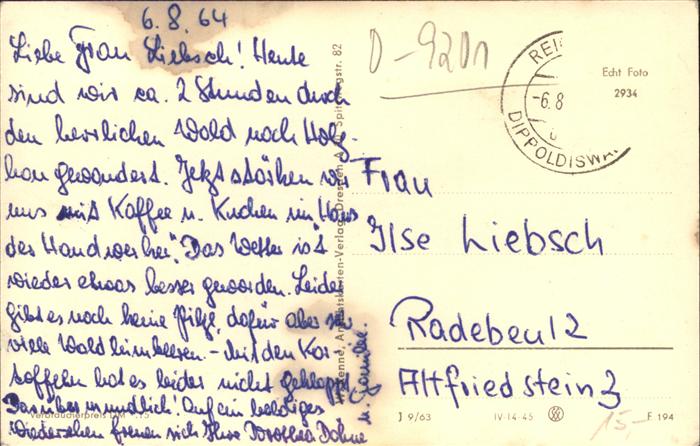 6.8.64
Liebe Frau Liebsch! Heute
sind wir ca. 2 Stunden durch
den herrlichen Wald nach Holz-
hau gewandert. Jetzt stärken wir
uns mit Kaffee u. Kuchen im „Haus
der Handwerker“. Das Wetter ist
wieder etwas besser geworden. Leider
gibt es noch keine Pilze, dafür aber sehr
viele Waldhimbeeren. – Mit den Kar-
toffeln hat es leider nicht geklappt.
Darüber mündlich! Auf ein baldiges
Wiedersehen freuen sich Ihre Dorothea Dohne
u. Familie.
Verbraucherpreis DM
Ansichtskarten-Verlag, Dresden A 20, Spitzwegstr. 82
D-9201
REI
-6.8
DIPPOLDISWA
Echt Foto
2934
Frau
Ilse Liebsch
Radebeul 2
Altfriedstein 3
J 9/63 IV-14-45 F 194
15-